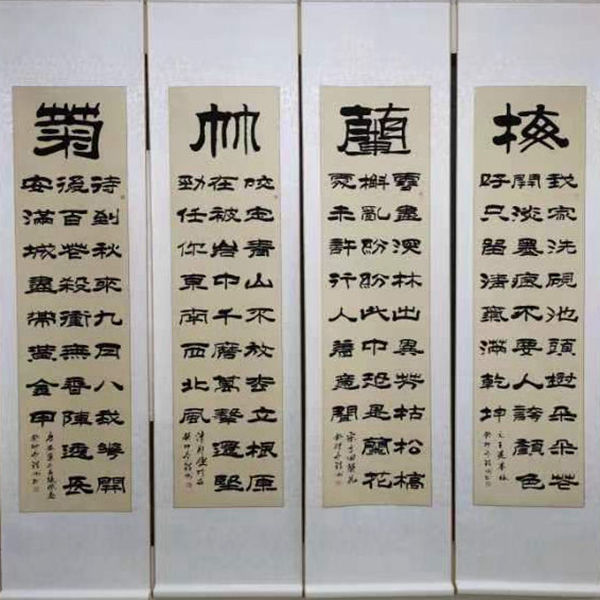 梅
我家洗硯池頭樹朵朵花
開淡墨痕不要人誇顏色
好只留清氣滿乾坤
元王冕墨梅
蘭
雪盡深林出異芳枯松槁
槲亂紛紛此中恐是蘭花
處未許行人著意聞
竹
咬定青山不放松立根原
在破岩中千磨萬擊還堅
勁任你東南西北風
清鄭燮竹石
菊
待到秋來九月八我花開
後百花殺衝天香陣透長
安滿城盡帶黃金甲